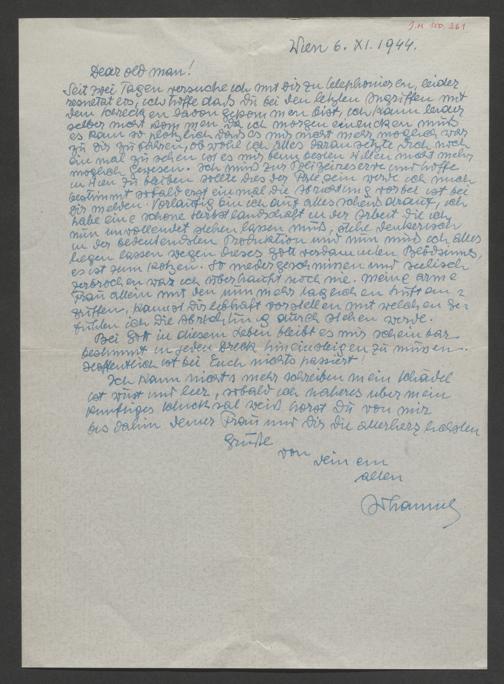 I.N. 180.361
Wien 6. XI. 1944.
Dear old man!
Seit zwei Tagen versuche ich mit Dir zu telephonieren, leider
resultatlos, ich hoffe daß Du bei den letzten Angriffen mit
dem Schrecken davon gekommen bist, ich kann leider
selber nicht kommen da ich morgen einrücken muß
es kam so plötzlich daß es mir nicht mehr möglich war
zu Dir zu fahren, obwohl ich alles daran setzte Dich noch
einmal zu sehen ist es mir beim besten Willen nicht mehr
möglich gewesen. Ich muß zur Polizeireserve und hoffe
in Wien zu bleiben sollte dies der Fall sein werde ich mich
bestimmt sobald erst einmal die Abrichtung vorbei ist bei
Dir melden. Vorläufig bin ich auf alles scheiß drauf, ich
habe eine schöne Herbstlandschaft in der Arbeit die ich
nun unvollendet stehen lassen muß, stehe denkerisch
in der bedeutendsten Produktion und nun muß ich alles
liegen lassen wegen dieses gottverdammten Blödsinns,
es ist zum kotzen. So niedergeschmissen und seelisch
zerbrochen war ich überhaupt noch nie. Meine arme
Frau allein mit den nunmehr täglichen Luftan=
griffen, kannst Dir lebhaft vorstellen mit welchen Ge=
fühlen ich die Abrichtung durch stehen werde.
Bei Gott in diesem Leben bleibt es mir scheinbar
bestimmt in jeden Dreck hineinsteigen zu müssen.
Hoffentlich ist bei Euch nichts passiert
Ich kann nichts mehr schreiben mein Schädel
ist wüst und leer, sobald ich näheres über mein
künftiges Schicksal weiß hörst Du von mir
bis dahin Deiner Frau und Dir die allerherzlichsten
Grüße
von
Deinem
alten